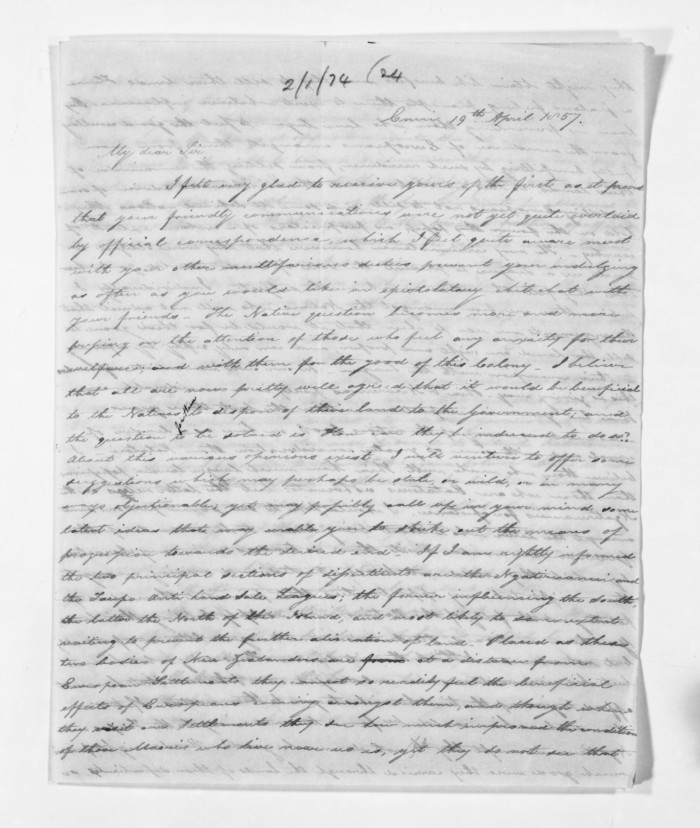 2/1/74 (24
19th April 1857.
My dear Sir
I felt very glad to receive yours of the first, as it proves
that your friendly communications are not yet quite overlaid
by official correspondence, which I feel quite aware must
with your other multifarious duties prevent your indulging
as often as you would like in epistolatory chit chat with
your friends. The Native question becomes more and more
pressing on the attention of those who feel any anxiety for their
welfare, and with them for the good of this Colony. I believe
that all are now pretty well agreed that it would be beneficial
to the Natives to dispose of their land to the Government, and
the question to be solved is How can they be induced to do so?
About this various opinions exist. I will venture to offer some
suggestions which may perhaps be stale or wild, or in many
ways objectionable, yet may possibly call up in your mind some
latent ideas that may enable you to strike out the means of
progression towards the desired end. If I am rightly informed
the two principal sections of dissentients are the Ngatiruanui and
the Taupo Anti land Sale Leagues; the former influencing the South
the latter the North of this Island, and most likely to
to prevent the further alienation of land. Placed as these
two bodies of New Zealanders are from at a distance from
European Settlements they cannot so readily feel the beneficial
effects of Europeans living amongst them, and though when
they visit our Settlements they see how much improved the condition
of those Maories who live near us is, yet they do not see that